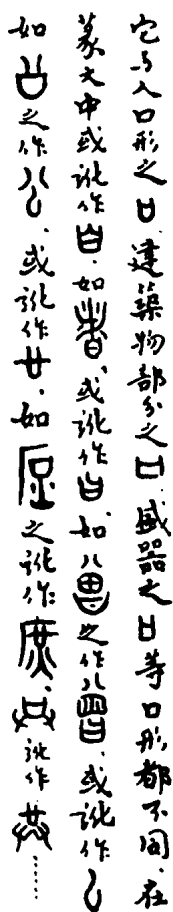 它与人口形之口、建築物部分之口、盛器之口等口形都不同、在
篆文中或訛作白、如者、或訛作白、如之作曾、或訛作
如之作、或訛作廿、如之訛作庶、訛作共……